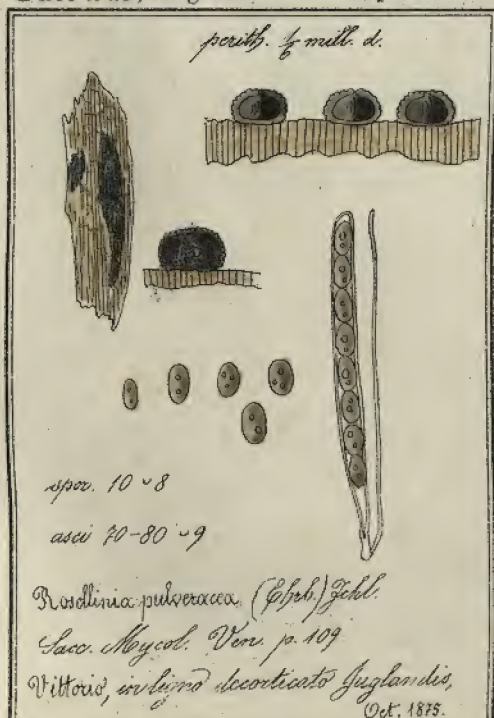 perith. ⅙ mill. d.
spor. 10 ⌣ 8
asci 70-80 ⌣ 9
Rosellinia pulveracea (Ehrb.) Fckl.
Sacc. Mycol. Ven. p. 109
Vittorio, in ligno decorticato Juglandis,
Oct. 1875.